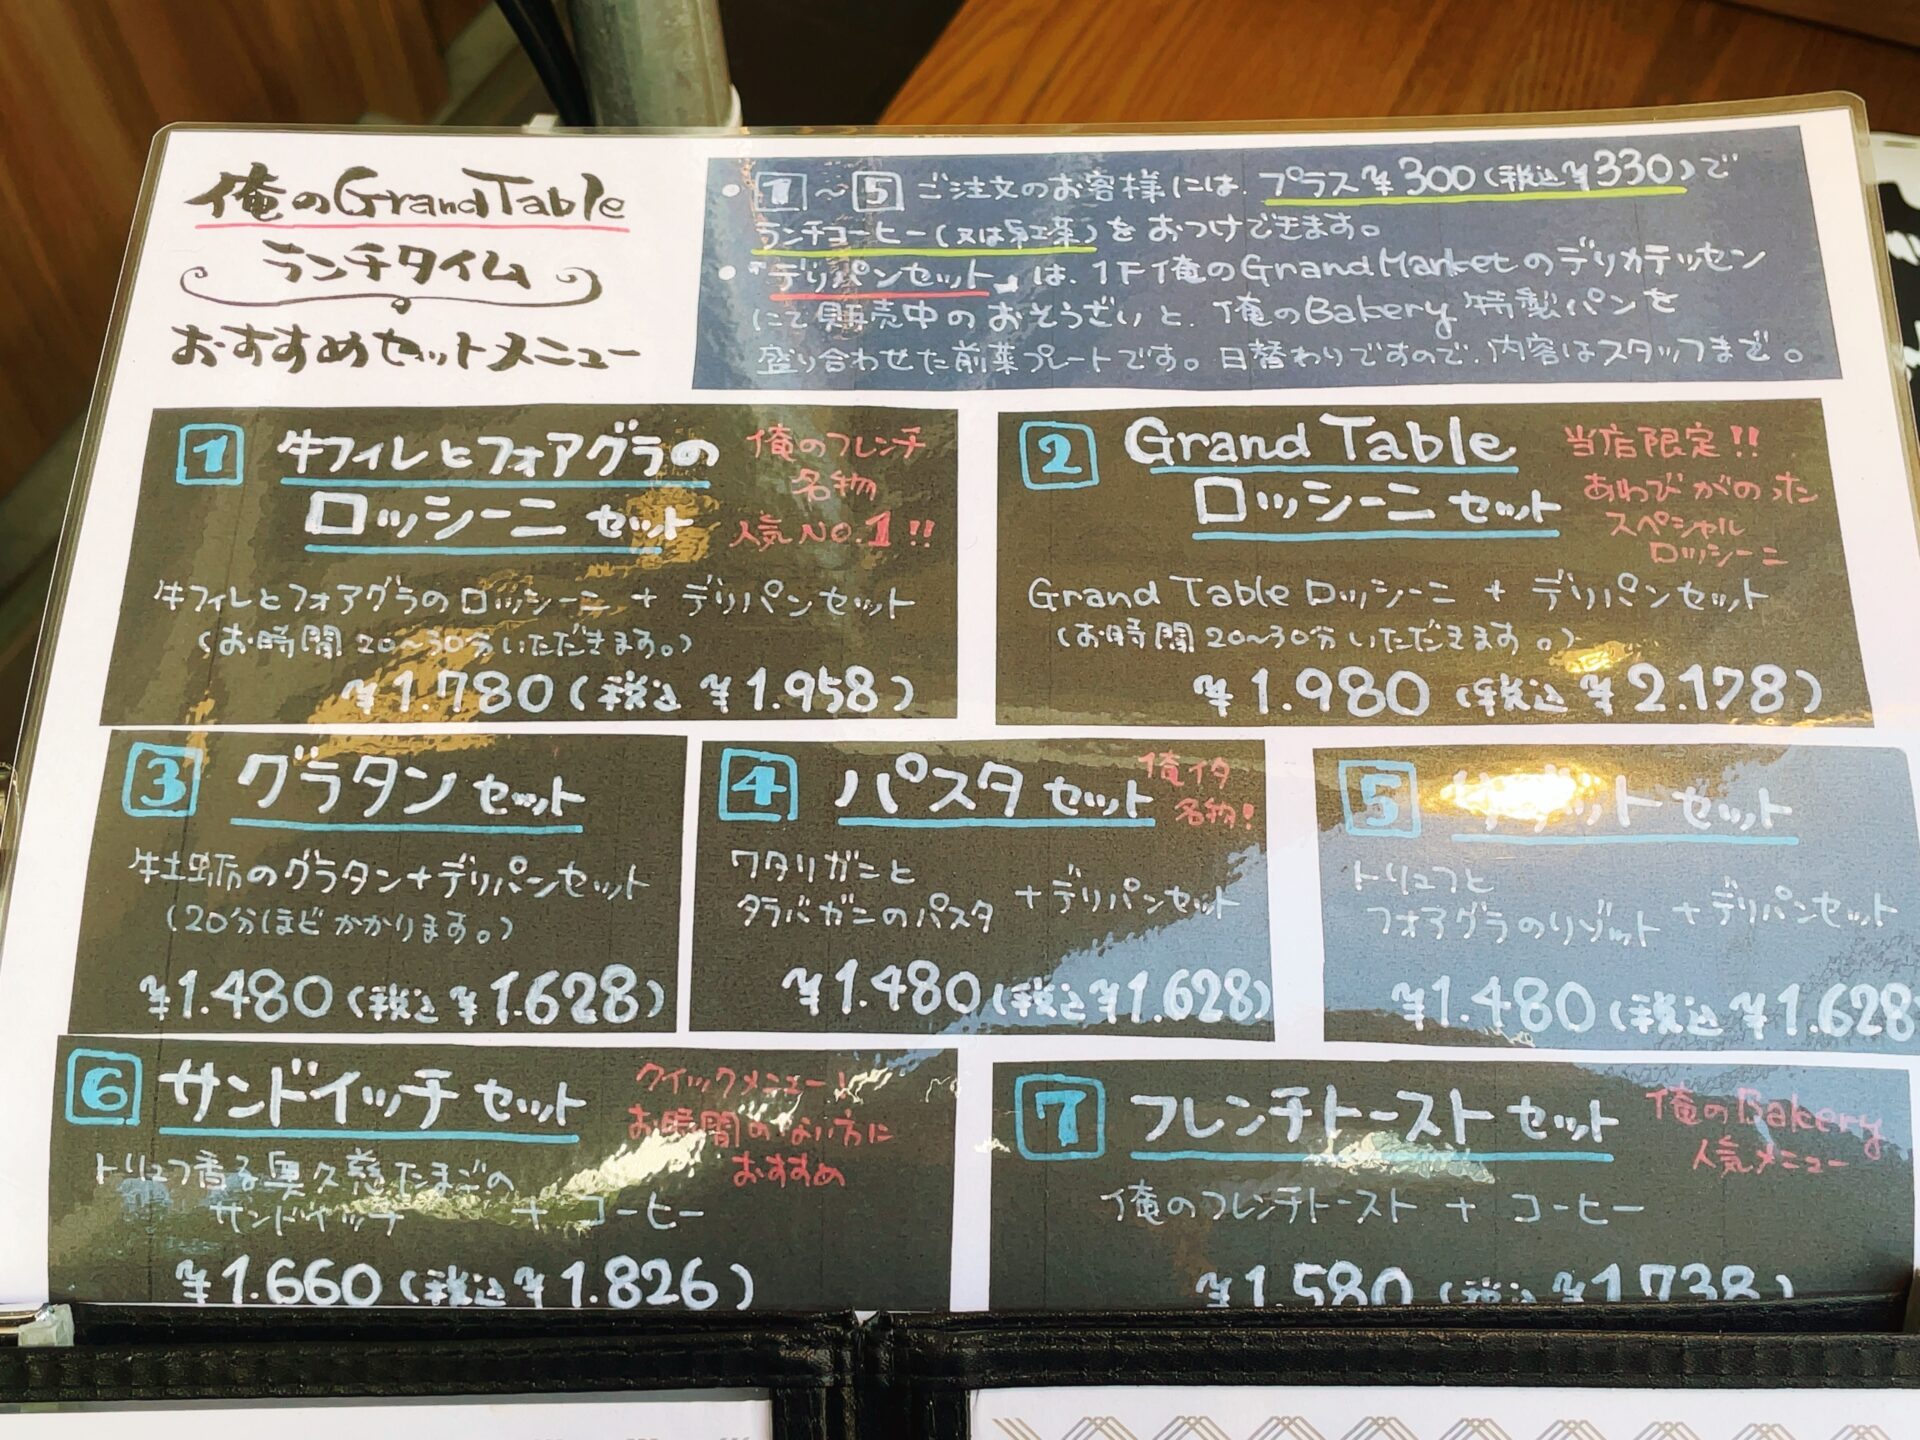 俺のGrand Table
ランチタイム
おすすめセットメニュー
• 1～5 ご注文のお客様には、プラス¥300(税込¥330)で
ランチコーヒー(又は紅茶)をおつけできます。
• "デリパンセット"は、1F俺のGrand Marketのデリカテッセン
にて販売中のおそうざいと、俺のBakery特製パンを
盛り合わせた前菜プレートです。日替わりですので、内容はスタッフまで。
1 牛フィレとフォアグラの
ロッシーニセット
俺のフレンチ
名物
人気No.1!!
牛フィレとフォアグラのロッシーニ + デリパンセット
(お時間20～30分いただきます。)
¥1.780(税込¥1.958)
2 Grand Table
ロッシーニセット
当店限定!!
あわびがのった
スペシャル
ロッシーニ
Grand Table ロッシーニ + デリパンセット
(お時間20～30分いただきます。)
¥1.980(税込¥2.178)
3 グラタンセット
牡蛎のグラタン+デリパンセット
(20分ほどかかります。)
¥1.480(税込¥1.628)
4 パスタセット
俺イタ
名物!
ワタリガニと
タラバガニのパスタ
+デリパンセット
¥1.480(税込¥1.628)
5 リゾットセット
トリュフと
フォアグラのリゾット
+デリパンセット
¥1.480(税込¥1.628
6 サンドイッチセット
クイックメニュー!
お時間のない方に
おすすめ
トリュフ香る奥久慈たまごの
サンドイッチ + コーヒー
¥1.660(税込¥1.826)
7 フレンチトーストセット
俺のBakery
人気メニュー
俺のフレンチトースト + コーヒー
¥1.580(税込¥1.738)